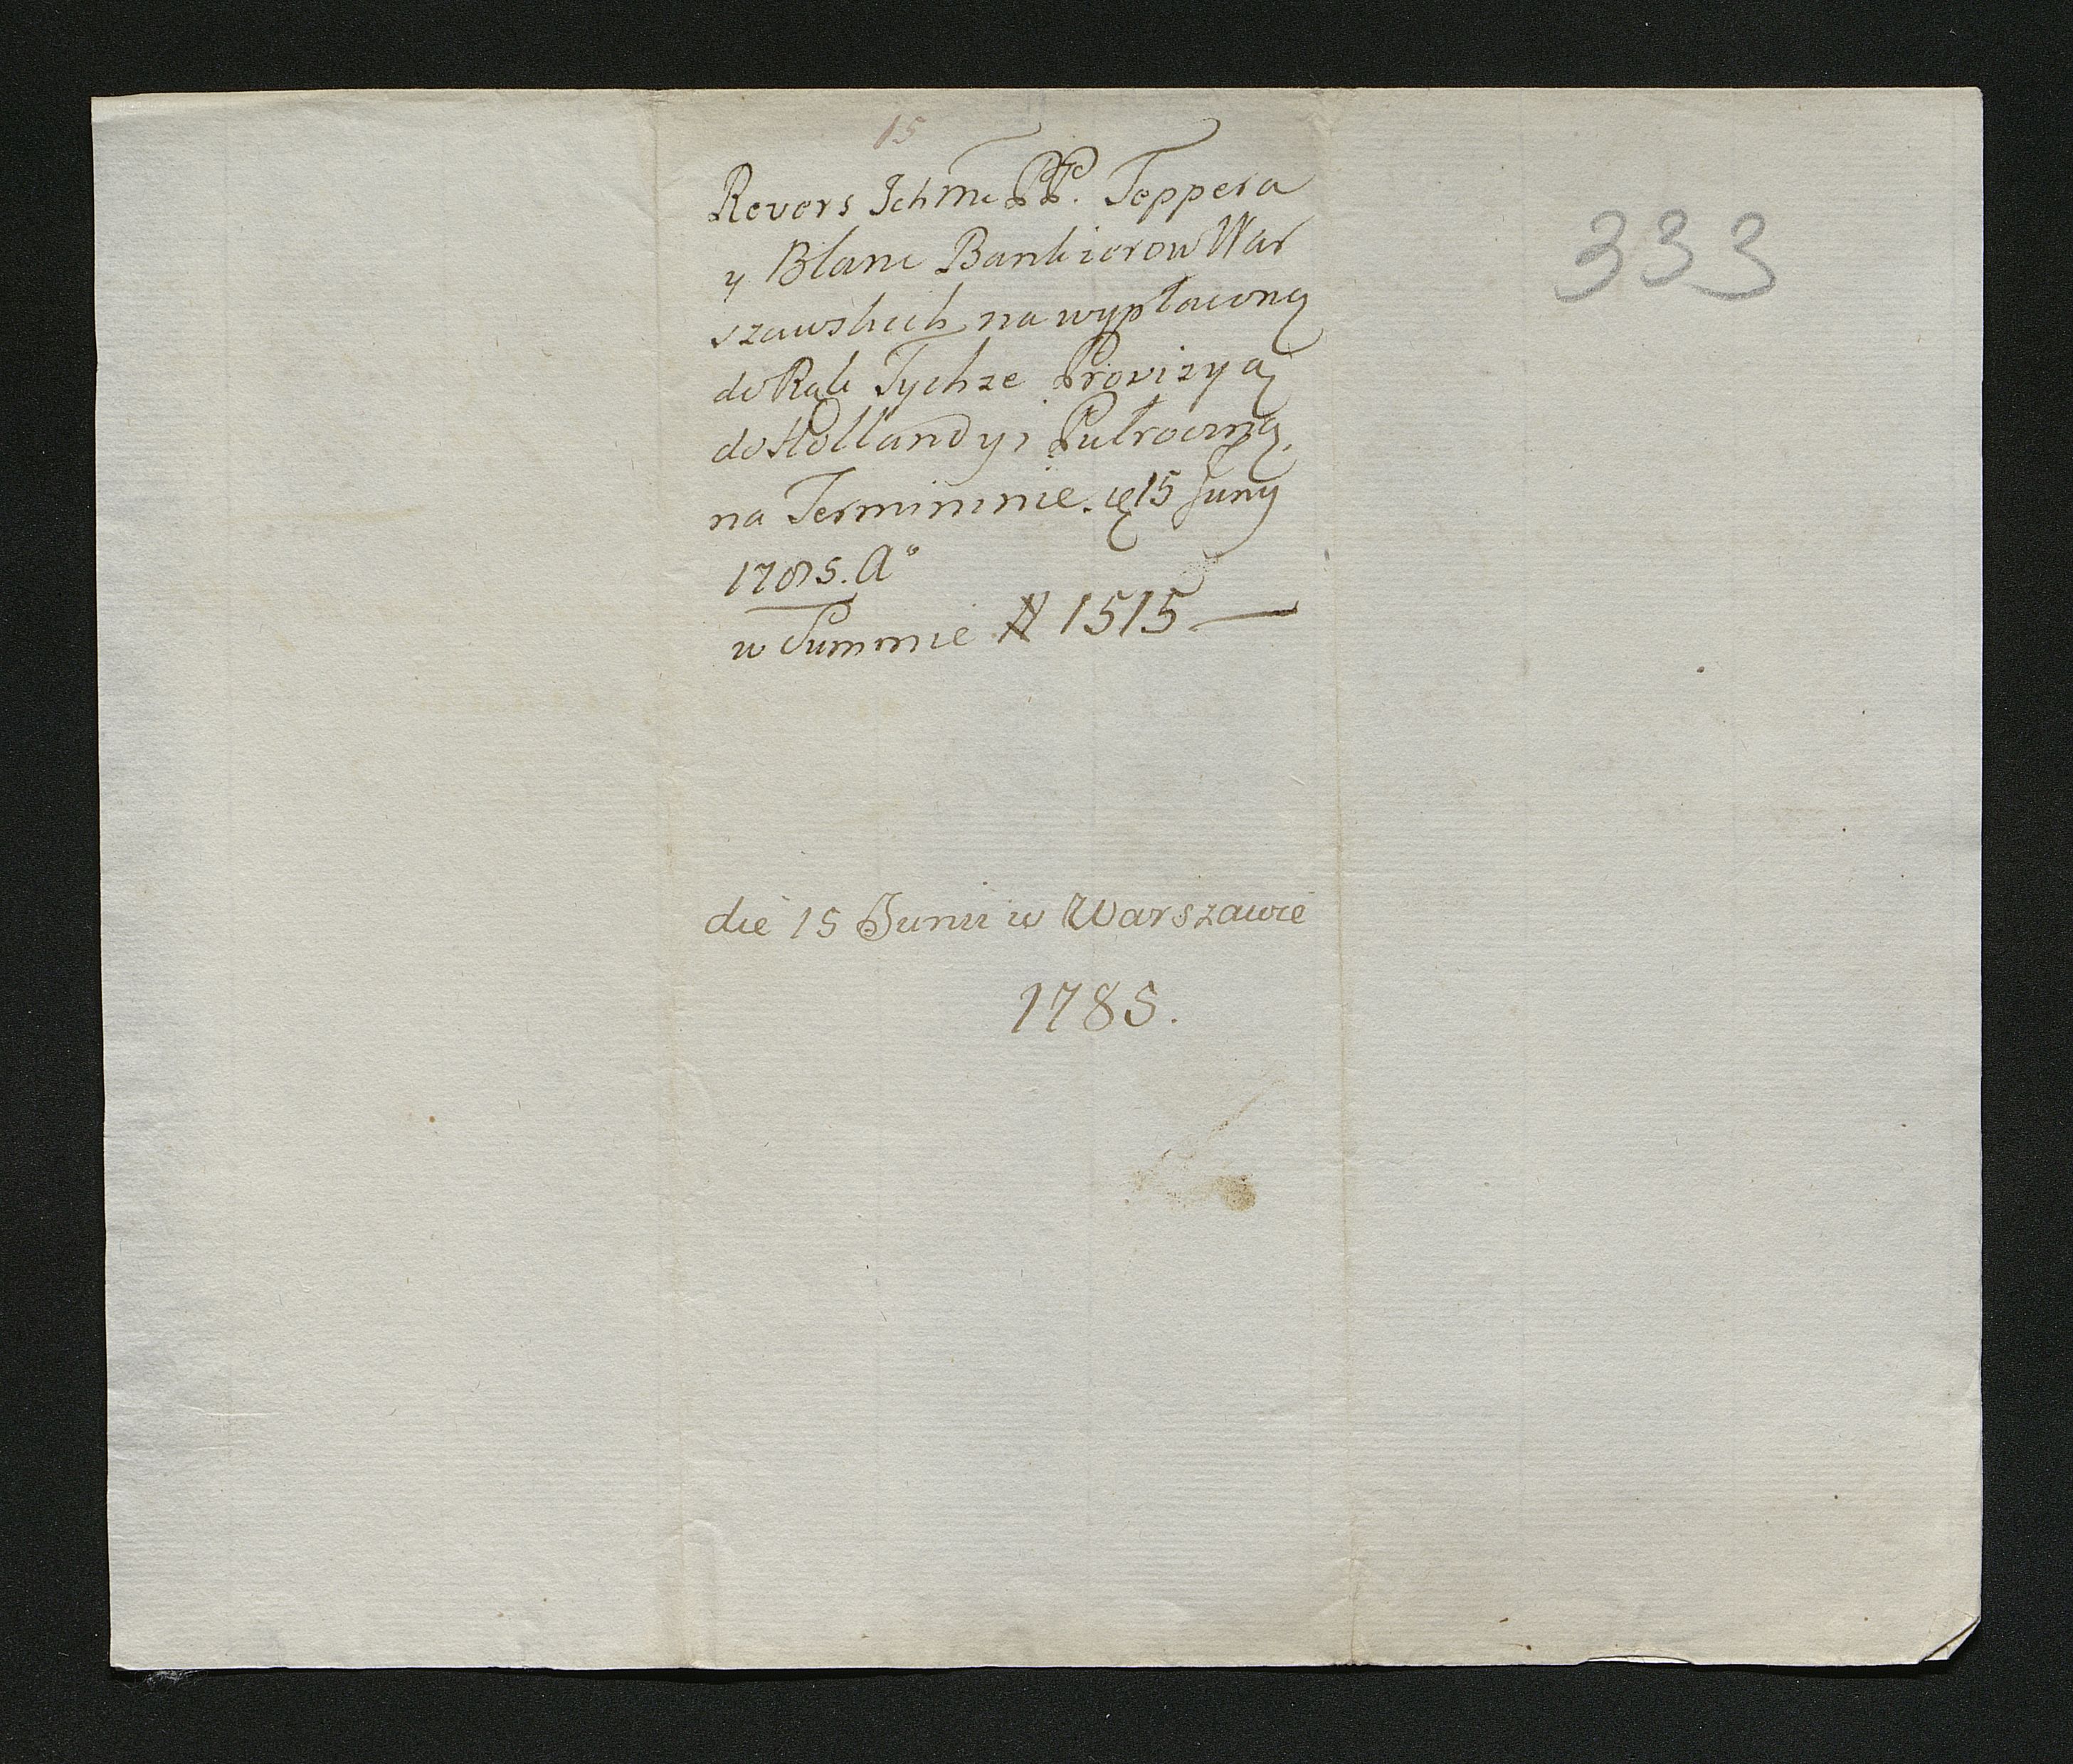 15
Revers Ichmc PP. Teppera
y Blanc Bankierow War
szawskich na wypłaconą
do Rąk Tychze Prowizyą
do Hollandyi Pułroczną,
na Terminnie 15 Juny
1785. Aº
w Summie # 1515 —
333
die 15 Junii w Warszawie
1785.